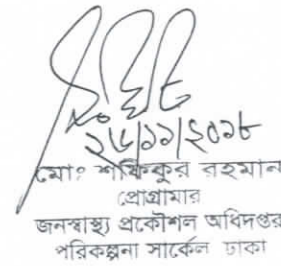 ২৬/১১/২০১৮
মোঃ শফিকুর রহমান
প্রোগ্রামার
জনস্বাস্থ্য প্রকৌশল অধিদপ্তর
পরিকল্পনা সার্কেল ঢাকা